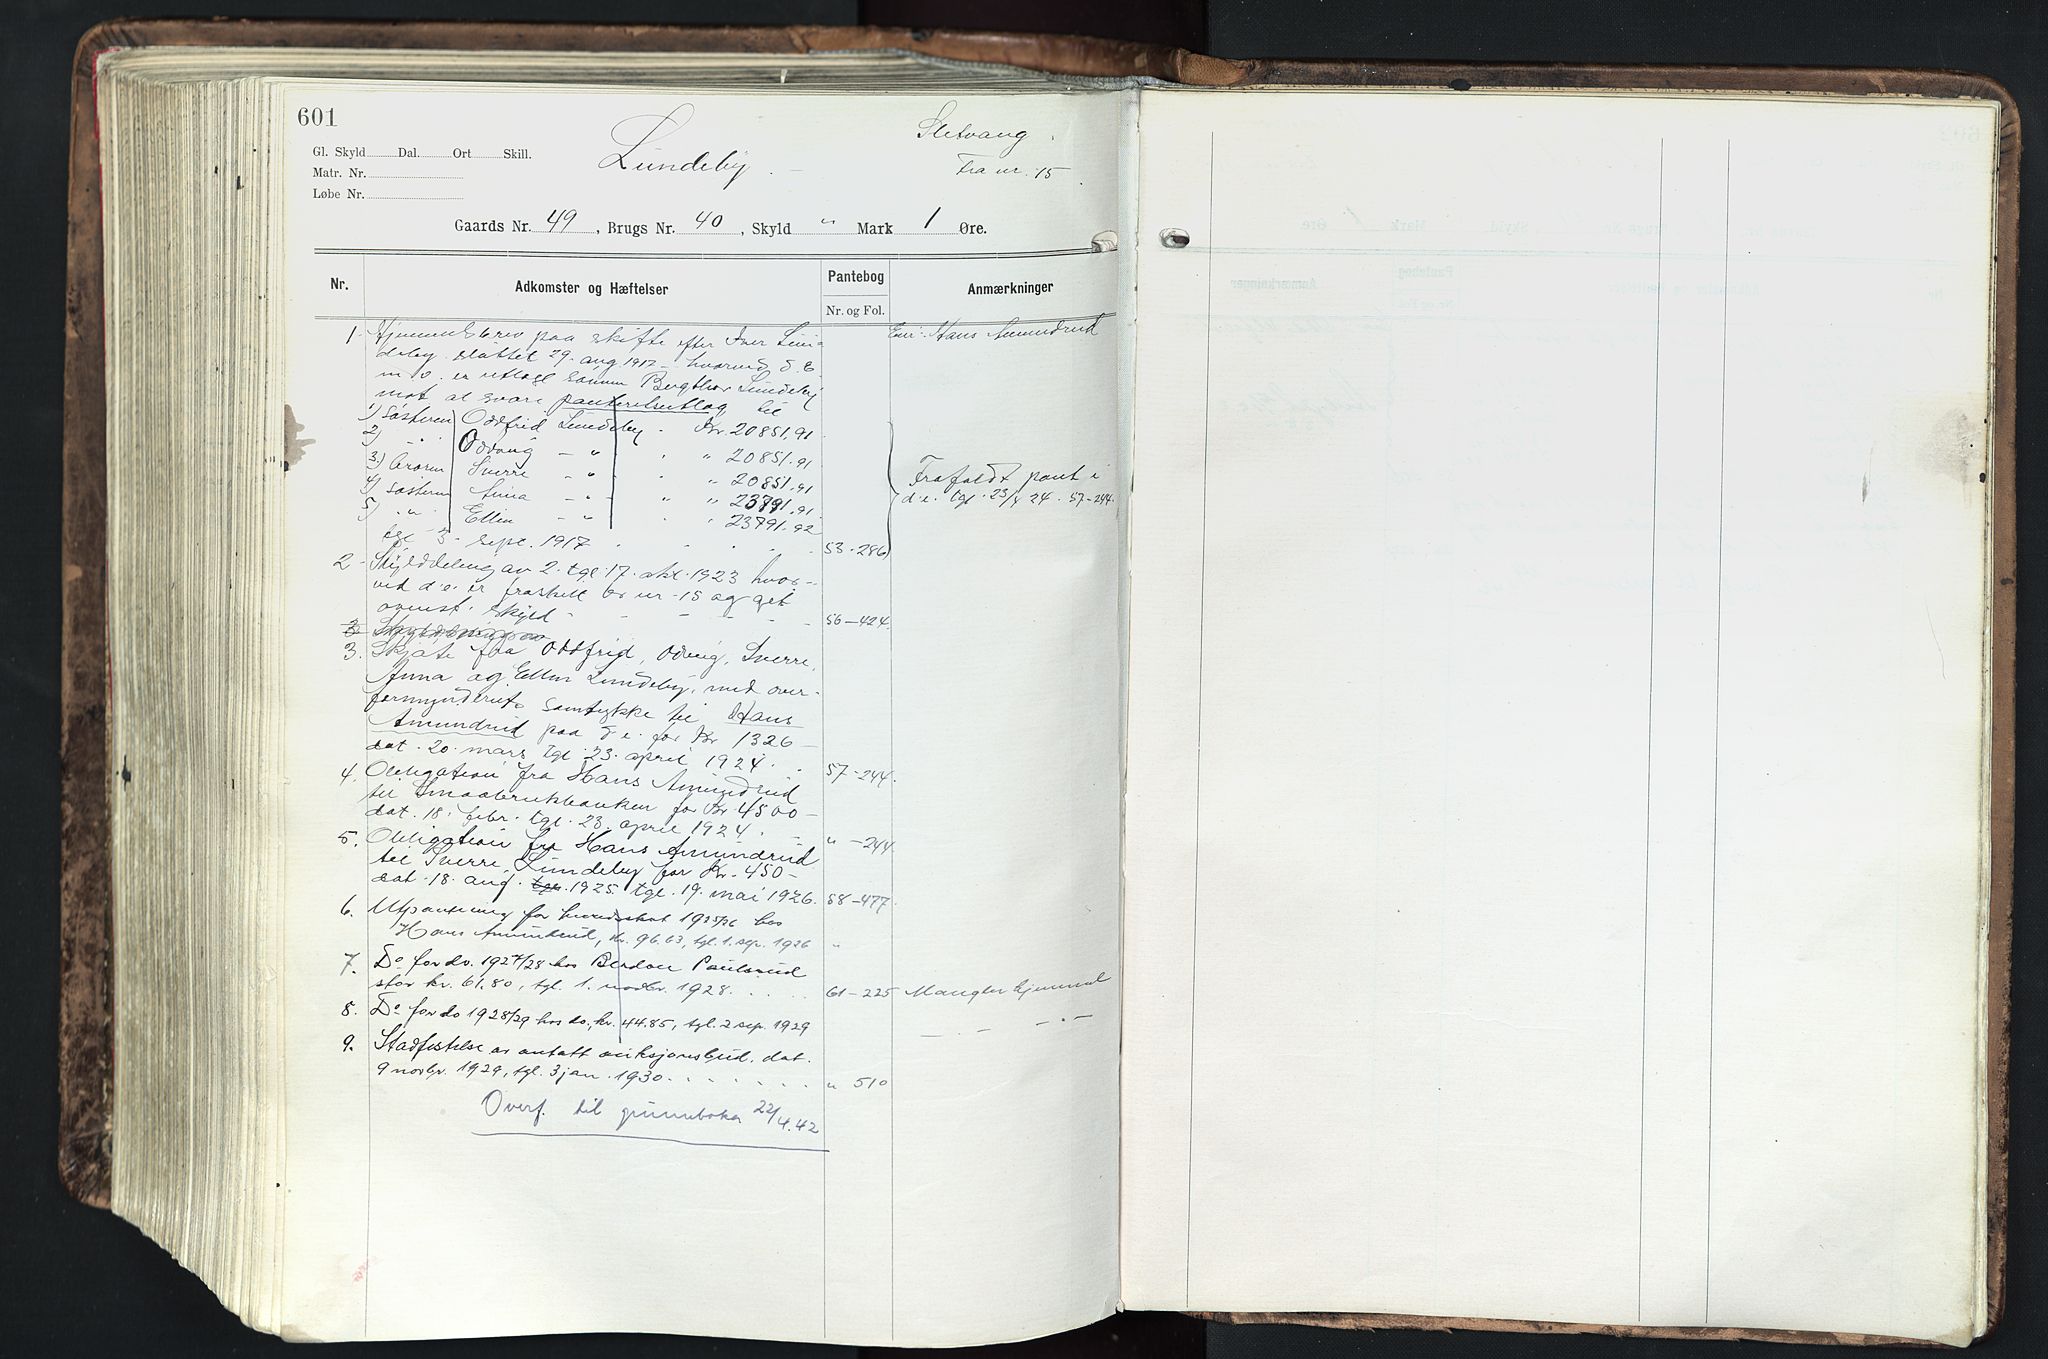 601
Sletvang
Gl. Skyld Dal. Ort Skill.
Lundeby
Matr. Nr.
Fra nr. 15
Løbe Nr.
Gaards Nr. 49, Brugs Nr. 40, Skyld " Mark 1 Øre.
Nr. Adkomster og Hæftelser Pantebog Anmærkninger
Nr. og Fol.
1. Hjemmelsbrev paa skifte efter Iver Lun- Eier: Hans Amundrud
deby sluttet 29. aug 1917 hvorved d. e.
m. v. er utlagt sønnen Bergthor Lundeby
mot at svare panteretsutlag til
1) Søsteren Oddfrid Lundeby Kr. 20851,91
2) " Oddvig " " 20851.91
3) Broren Sverre " " 20851.91
4) Søsteren Anna " " 23791.91
5) " Ellen " " 23791.92
Frafaldt pant i
d. e. tgl. 23/4 24. 57-244
tgl 3. sept. 1917 53-286
2 Skylddeling av 2. tgl. 17. okt. 1923 hvor-
ved d. e. er fraskilt br nr 15 og git
ovenst. skyld 56-424.
3 Skylddeling av
3. Skjøte fra Oddfrid, Odvig, Sverre,
Anna og Ellen Lundeby, med over-
formynderiets samtykke til Hans
Amundrud paa d. e. for Kr 1326-
dat. 20. mars, tgl. 23. april 1924. 57-244.
4. Obligation fra Hans Amundrud
til Smaabrukbanken for Kr. 4500-
dat. 18. febr. tgl. 23. april 1924. " -244.
5. Obligation fra Hans Amundrud
til Sverre Lundeby for Kr. 450-
dat. 18. aug. tgl. 1925. tgl. 19. mai 1926. 58-477.
6. Utpantning for herredsskat 1925/26 hos
Hans Amundrud, kr. 96.63, tgl. 1. sep. 1926 "
7. Do for do. 1927/28 hos Berdon Paulsrud
stor kr. 61.80, tgl. 1. novbr. 1928. 61-225 Mangler hjemmel
8. Do for do 1928/29 hos do, kr. 44.85, tgl. 2 sep. 1929 — . — — . —
9. Stadfestelse av antatt auksjonsbud, dat.
9 novbr. 1929, tgl. 3 jan. 1930. " 510
Overf. til grunnboka 22/4.42